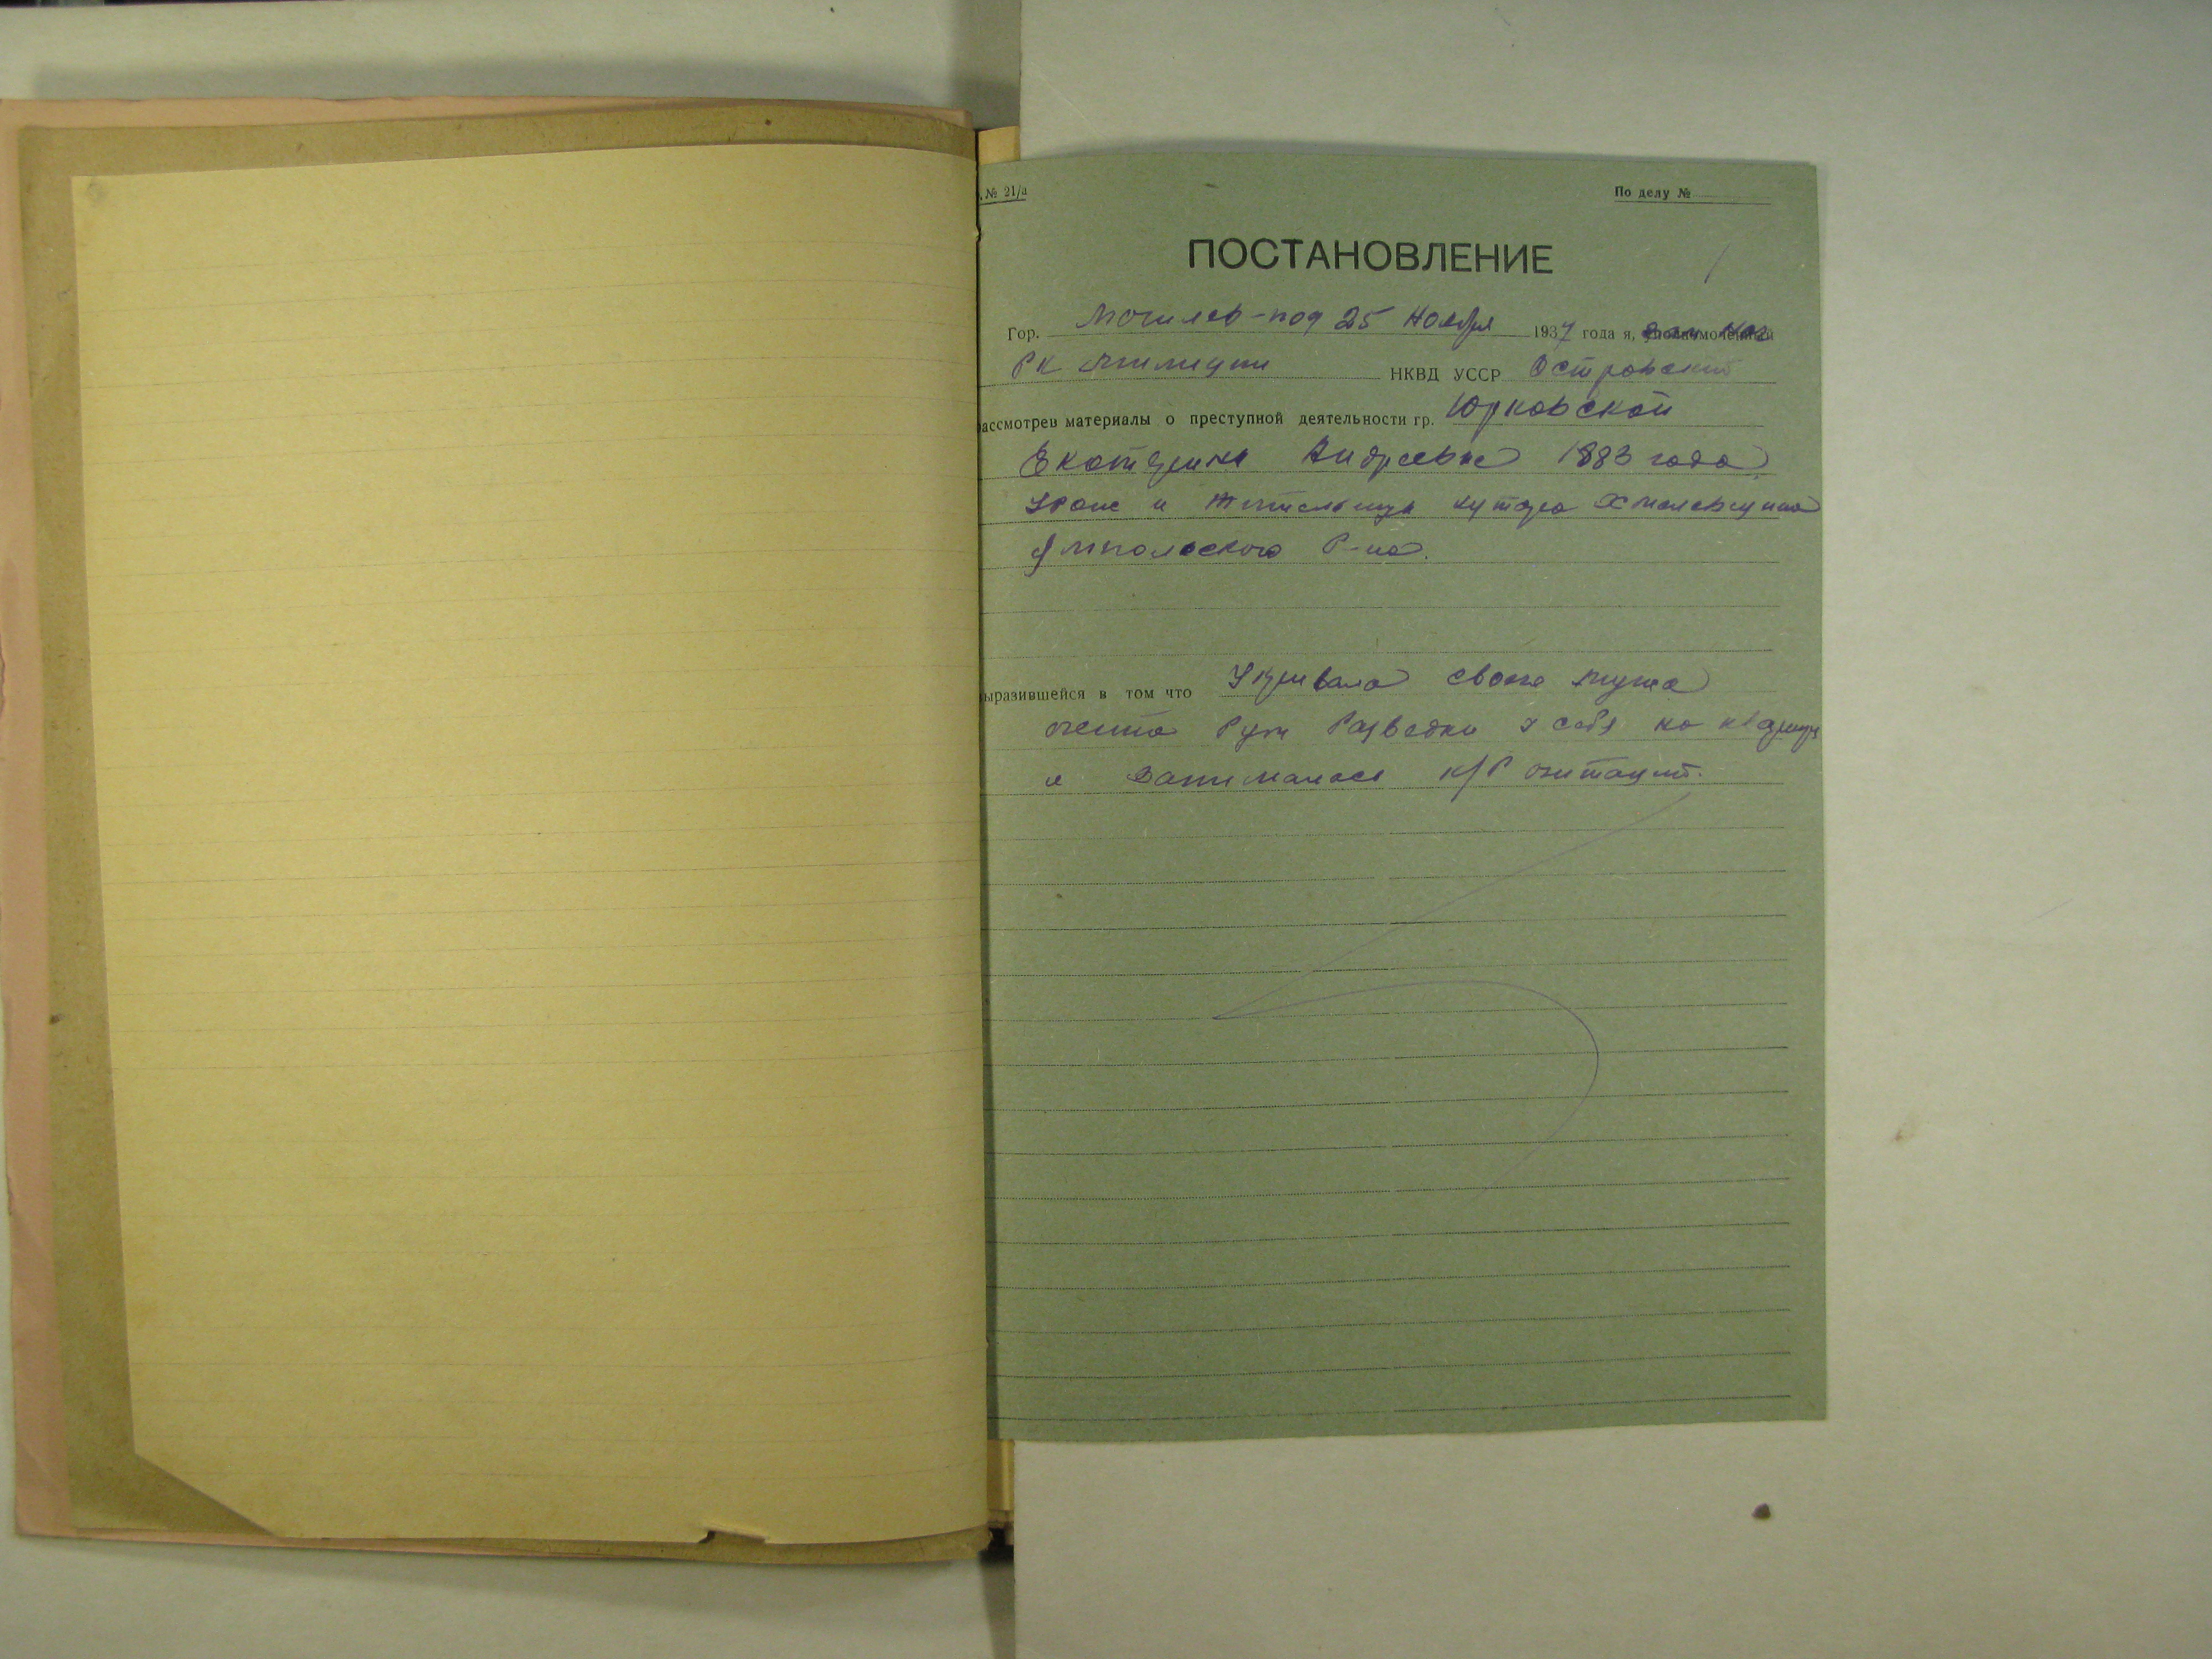 . № 21/а
По делу №
ПОСТАНОВЛЕНИЕ
Гор. Могилев-под 25 Ноября 1937 года я, уполномоченный
РК Милиции НКВД УССР Островский
рассмотрев материалы о преступной деятельности гр. Юрковской
Екотерина Андреевне 1883 года
Урож и жительница хутора Хмелевщина
Ямпольского Р-на.
выразившейся в том что Укривала своего мужа
агента Рум Разведки у себя на квартири
и занималась к/Р агитацит.